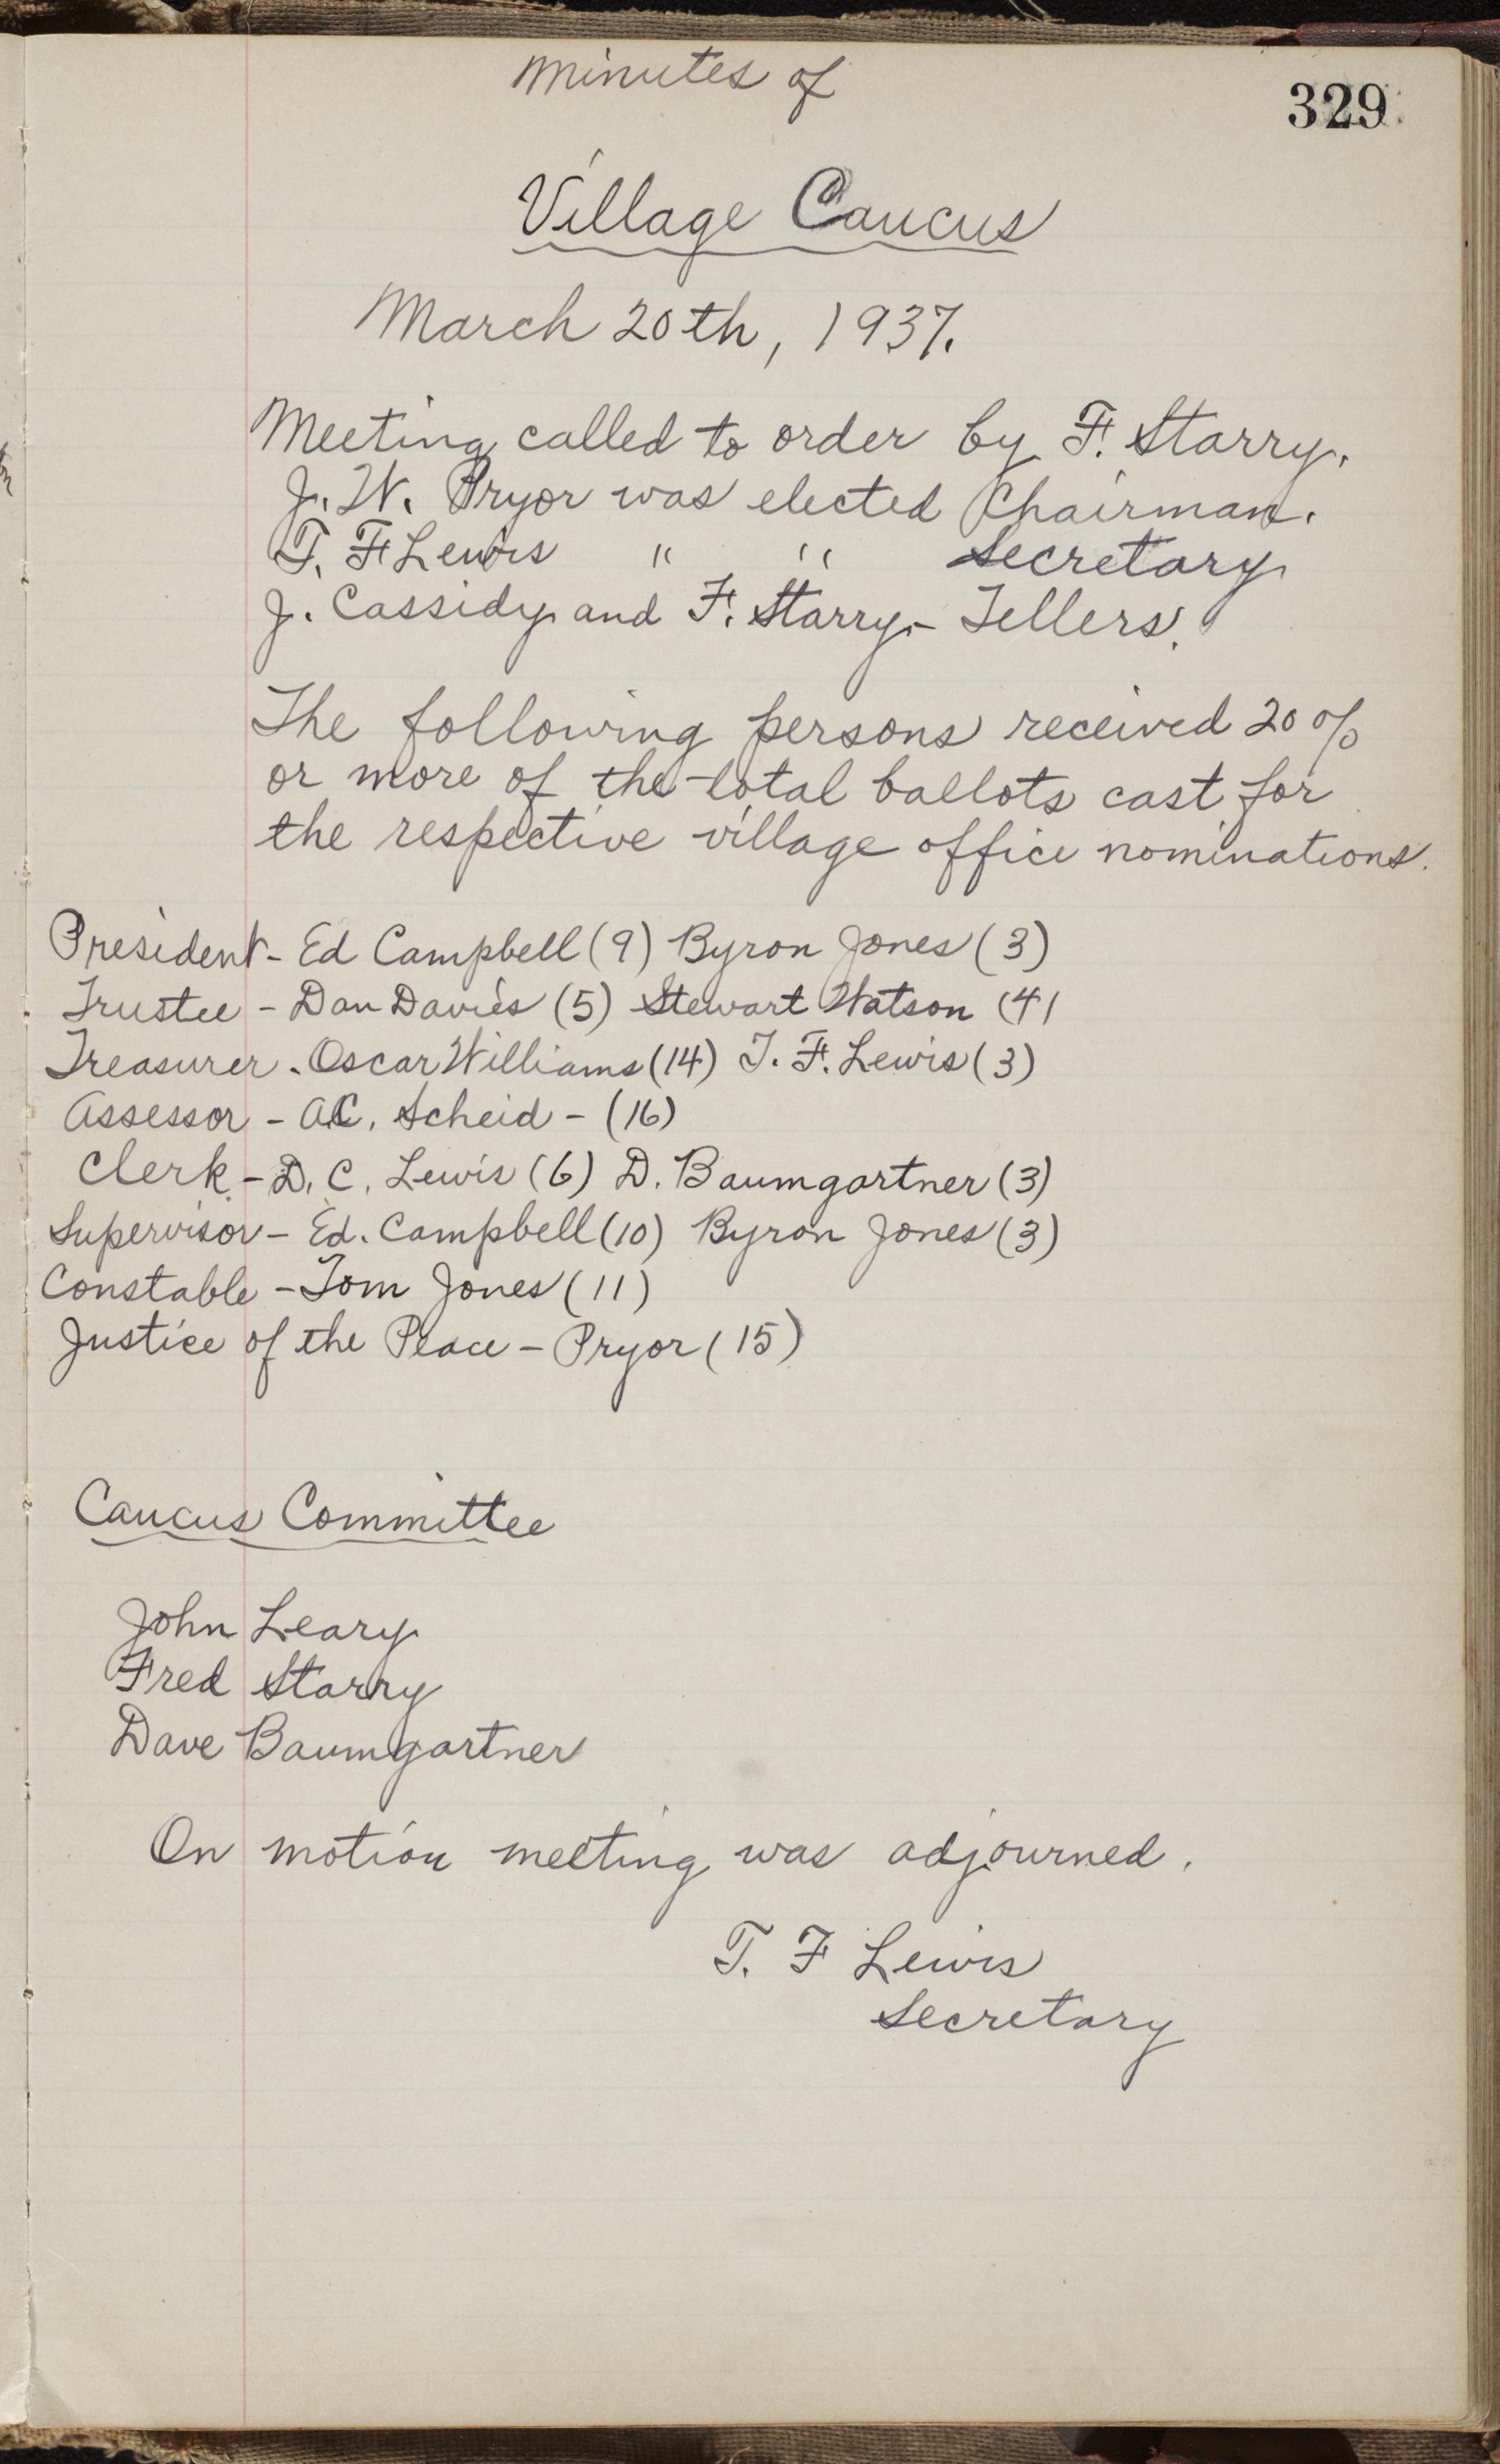 Minutes of
329
Village Caucus
March 20th, 1937.
Meeting called to order by F. Starry.
J. W. Pryor was elected Chairman.
T. F. Lewis " " Secretary
J. Cassidy and F. Starry - Tellers.
The following persons received 20 %
or more of the total ballots cast for
the respective village office nominations.
President - Ed Campbell (9) Byron Jones (3)
Trustee - Dan Davies (5) Stewart Watson (4)
Treasurer - Oscar Williams (14) T. F. Lewis (3)
Assessor - A.C. Scheid - (16)
Clerk - D. C. Lewis (6) D. Baumgartner (3)
Supervisor - Ed. Campbell (10) Byron Jones (3)
Constable - Tom Jones (11)
Justice of the Peace - Pryor (15)
Caucus Committee
John Leary
Fred Starry
Dave Baumgartner
On motion meeting was adjourned.
T. F Lewis
Secretary